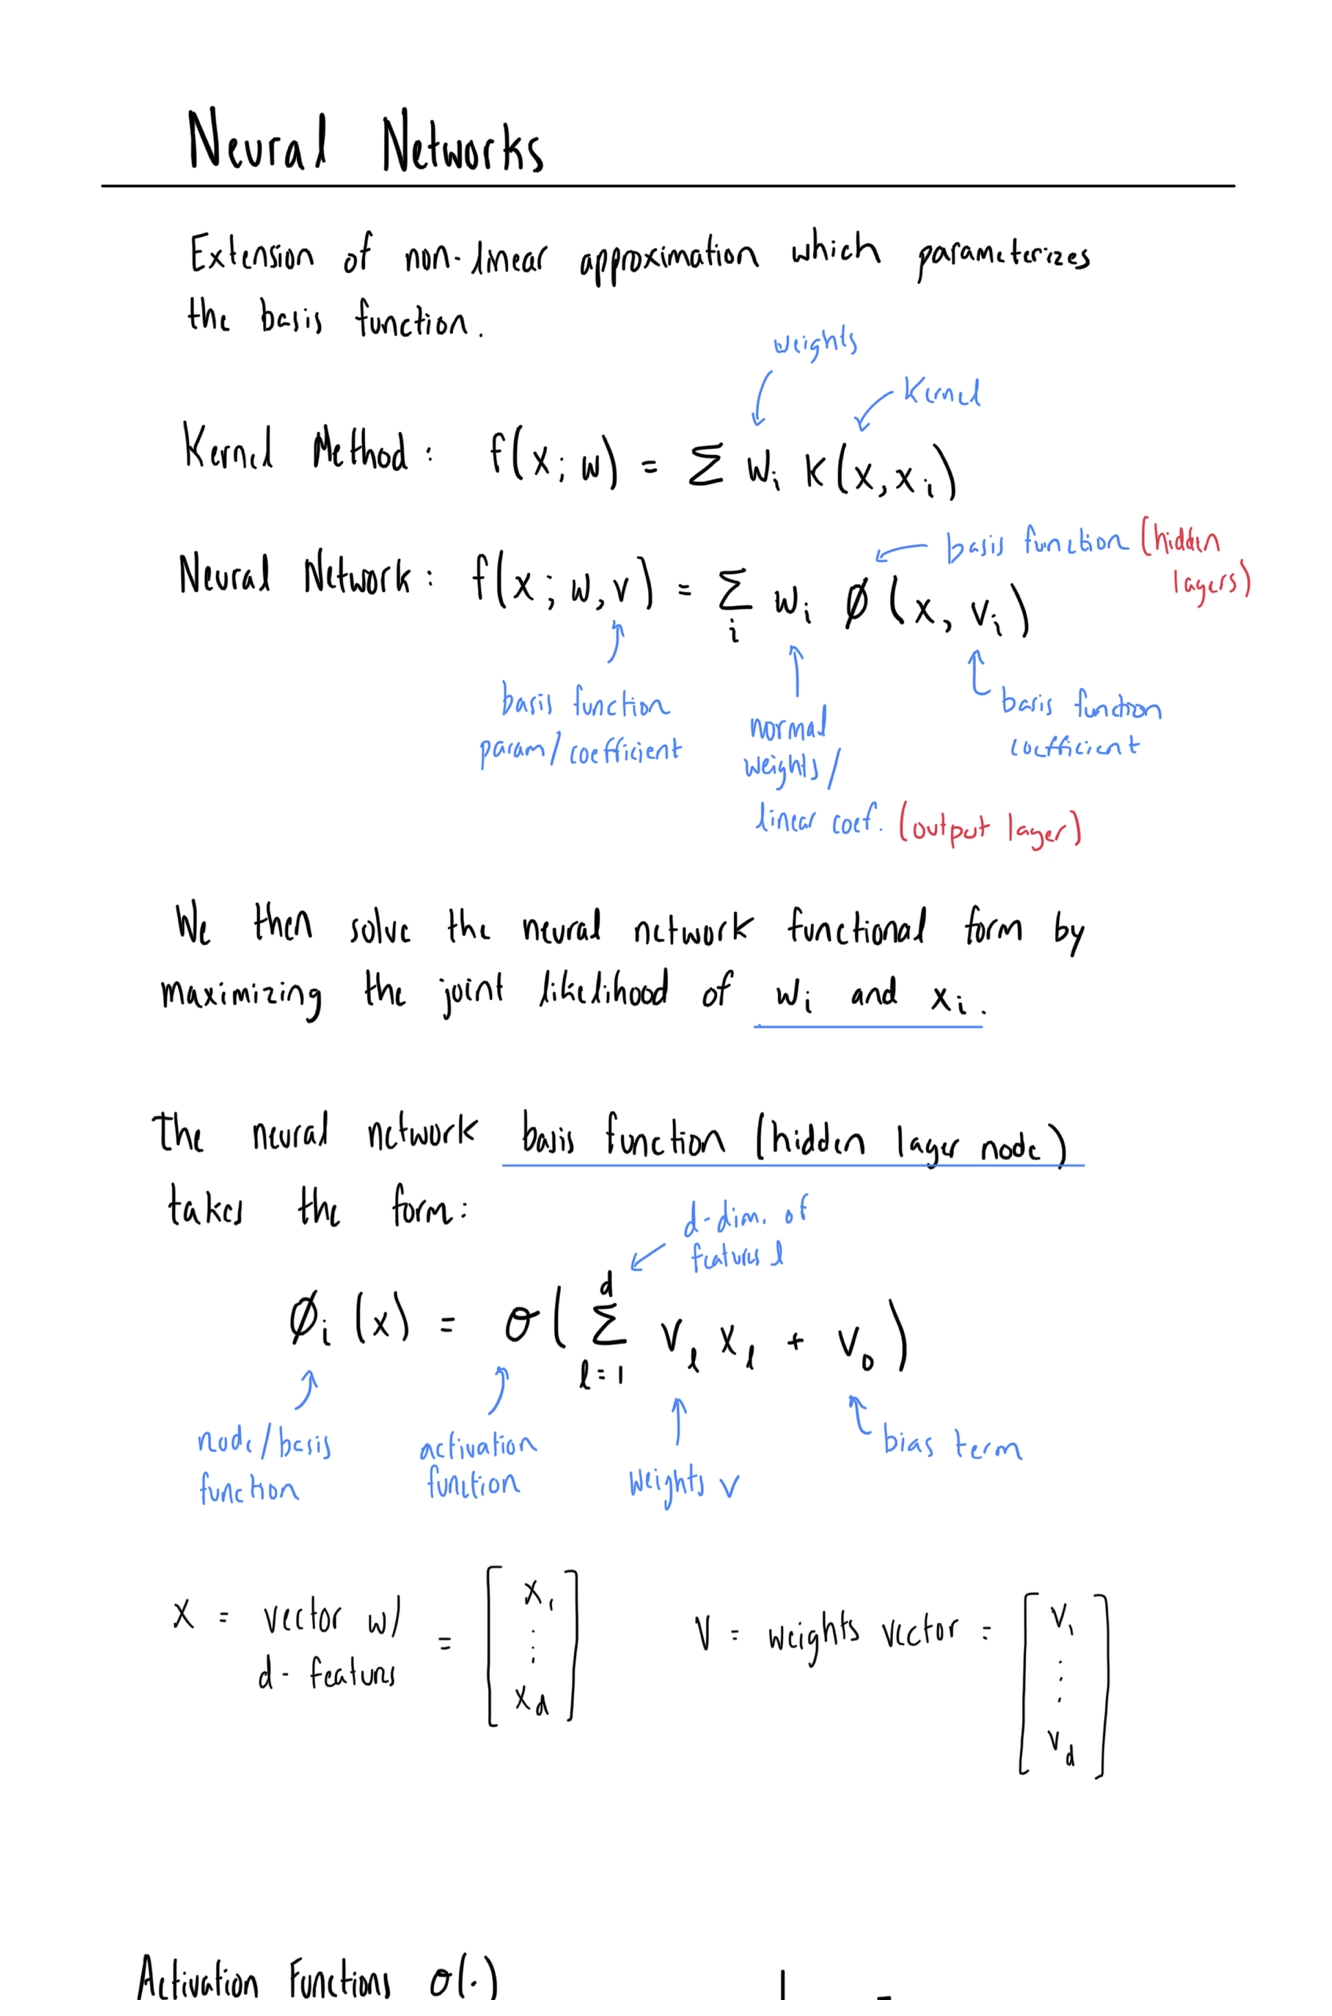 Neural Networks
Extension of non-linear approximation which parameterizes
the basis function.
weights
Kernel
Kernel Method: f(x; w) = Σ wᵢ K(x, xᵢ)
basis function (hidden
layers)
Neural Network: f(x; w, v) = Σ_i wᵢ ø(x, vᵢ)
basis function
param/coefficient
normal
weights/
linear coef. (output layer)
basis function
coefficient
We then solve the neural network functional form by
maximizing the joint likelihood of wᵢ and xᵢ.
The neural network basis function (hidden layer node)
takes the form:
d-dim. of
features l
øᵢ(x) = σ(Σ_{l=1}^{d} v_l x_l + v₀)
node/basis
function
activation
function
weights v
bias term
X = vector w/
d-features
= [x₁ ⋮ x_d]
V = weights vector = [v₁ ⋮ v_d]
Activation Functions σ(·)